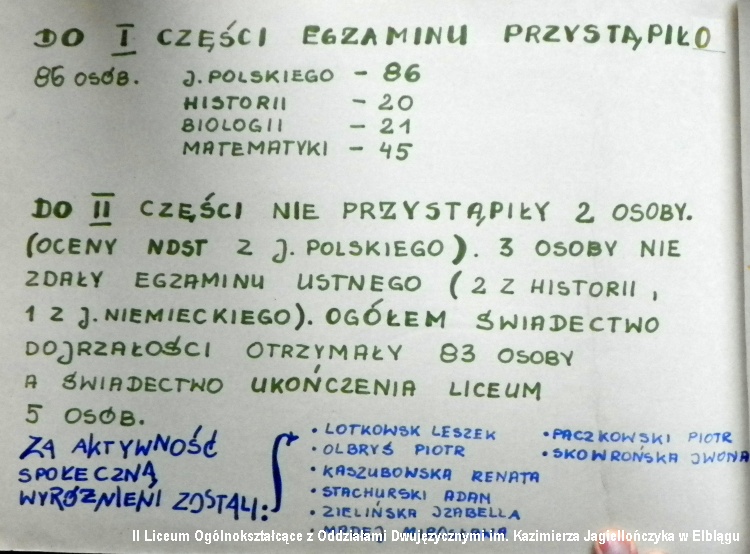 DO I CZĘŚCI EGZAMINU PRZYSTĄPIŁO
86 OSÓB. J. POLSKIEGO - 86
HISTORII - 20
BIOLOGII - 21
MATEMATYKI - 45
DO II CZĘŚCI NIE PRZYSTĄPIŁY 2 OSOBY.
(OCENY NDST Z J. POLSKIEGO). 3 OSOBY NIE
ZDAŁY EGZAMINU USTNEGO (2 Z HISTORII,
1 Z J. NIEMIECKIEGO). OGÓŁEM ŚWIADECTWO
DOJRZAŁOŚCI OTRZYMAŁY 83 OSOBY
A ŚWIADECTWO UKOŃCZENIA LICEUM
5 OSÓB.
ZA AKTYWNOŚĆ
SPOŁECZNĄ
WYRÓŻNIENI ZOSTALI:
• LOTKOWSK LESZEK
• OLBRYŚ PIOTR
• KASZUBOWSKA RENATA
• STACHURSKI ADAM
• ZIELIŃSKA IZABELLA
• MADEJ MIROSŁAWA
• PACZKOWSKI PIOTR
• SKOWROŃSKA IWONA
II Liceum Ogólnokształcące z Oddziałami Dwujęzycznymi im. Kazimierza Jagiellończyka w Elblągu